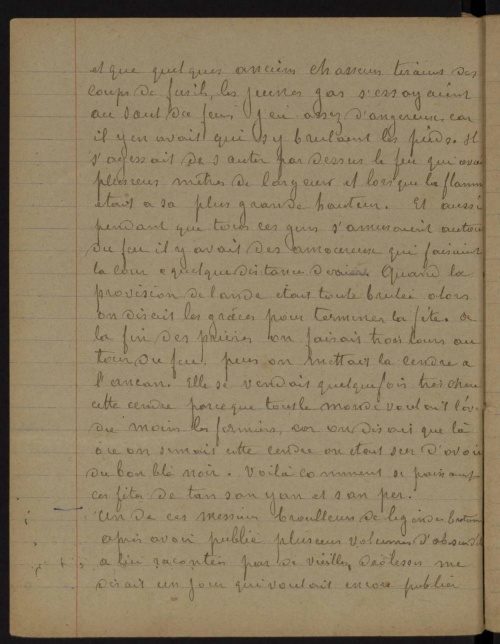 et que quelques anciens chasseurs tiraient des
coups de fusils, les jeunes gas s'essayaient
au saut du feu, jeu assez dangereux, car
il y en avait qui s'y brulaient les pieds. Il
s'agissait de sauter par dessus le feu qui avai
plusieurs mètres de largeur et lorsque la flamm
était a sa plus grande hauteur. Et aussi
pendant que tous ces gens s'amusaient autour
du feu il y avait des amoureux qui faisaient
la cour a quelque distance Quand la
provision de lande était toute brulée alors
on disait les grâces pour terminer la fête. A
la fin des prières on faisait trois tours au
tour du feu, puis on mettait la cendre a
l'ancan. Elle se vendait quelquefois très chère
cette cendre parce que tout le monde voulait l'avoi
du moins les fermiers, car on disait que là
où on semait cette cendre on était sur d'avoir
du bon blé noir. Voilà comment se passaient
ces fêtes de tan san yan et san per.
Un de ces messieurs brouilleurs de legendes bretonnes
après avoir publié plusieurs volumes
a lui racontés par de vieilles me
disait un jour qui voulait encore publier